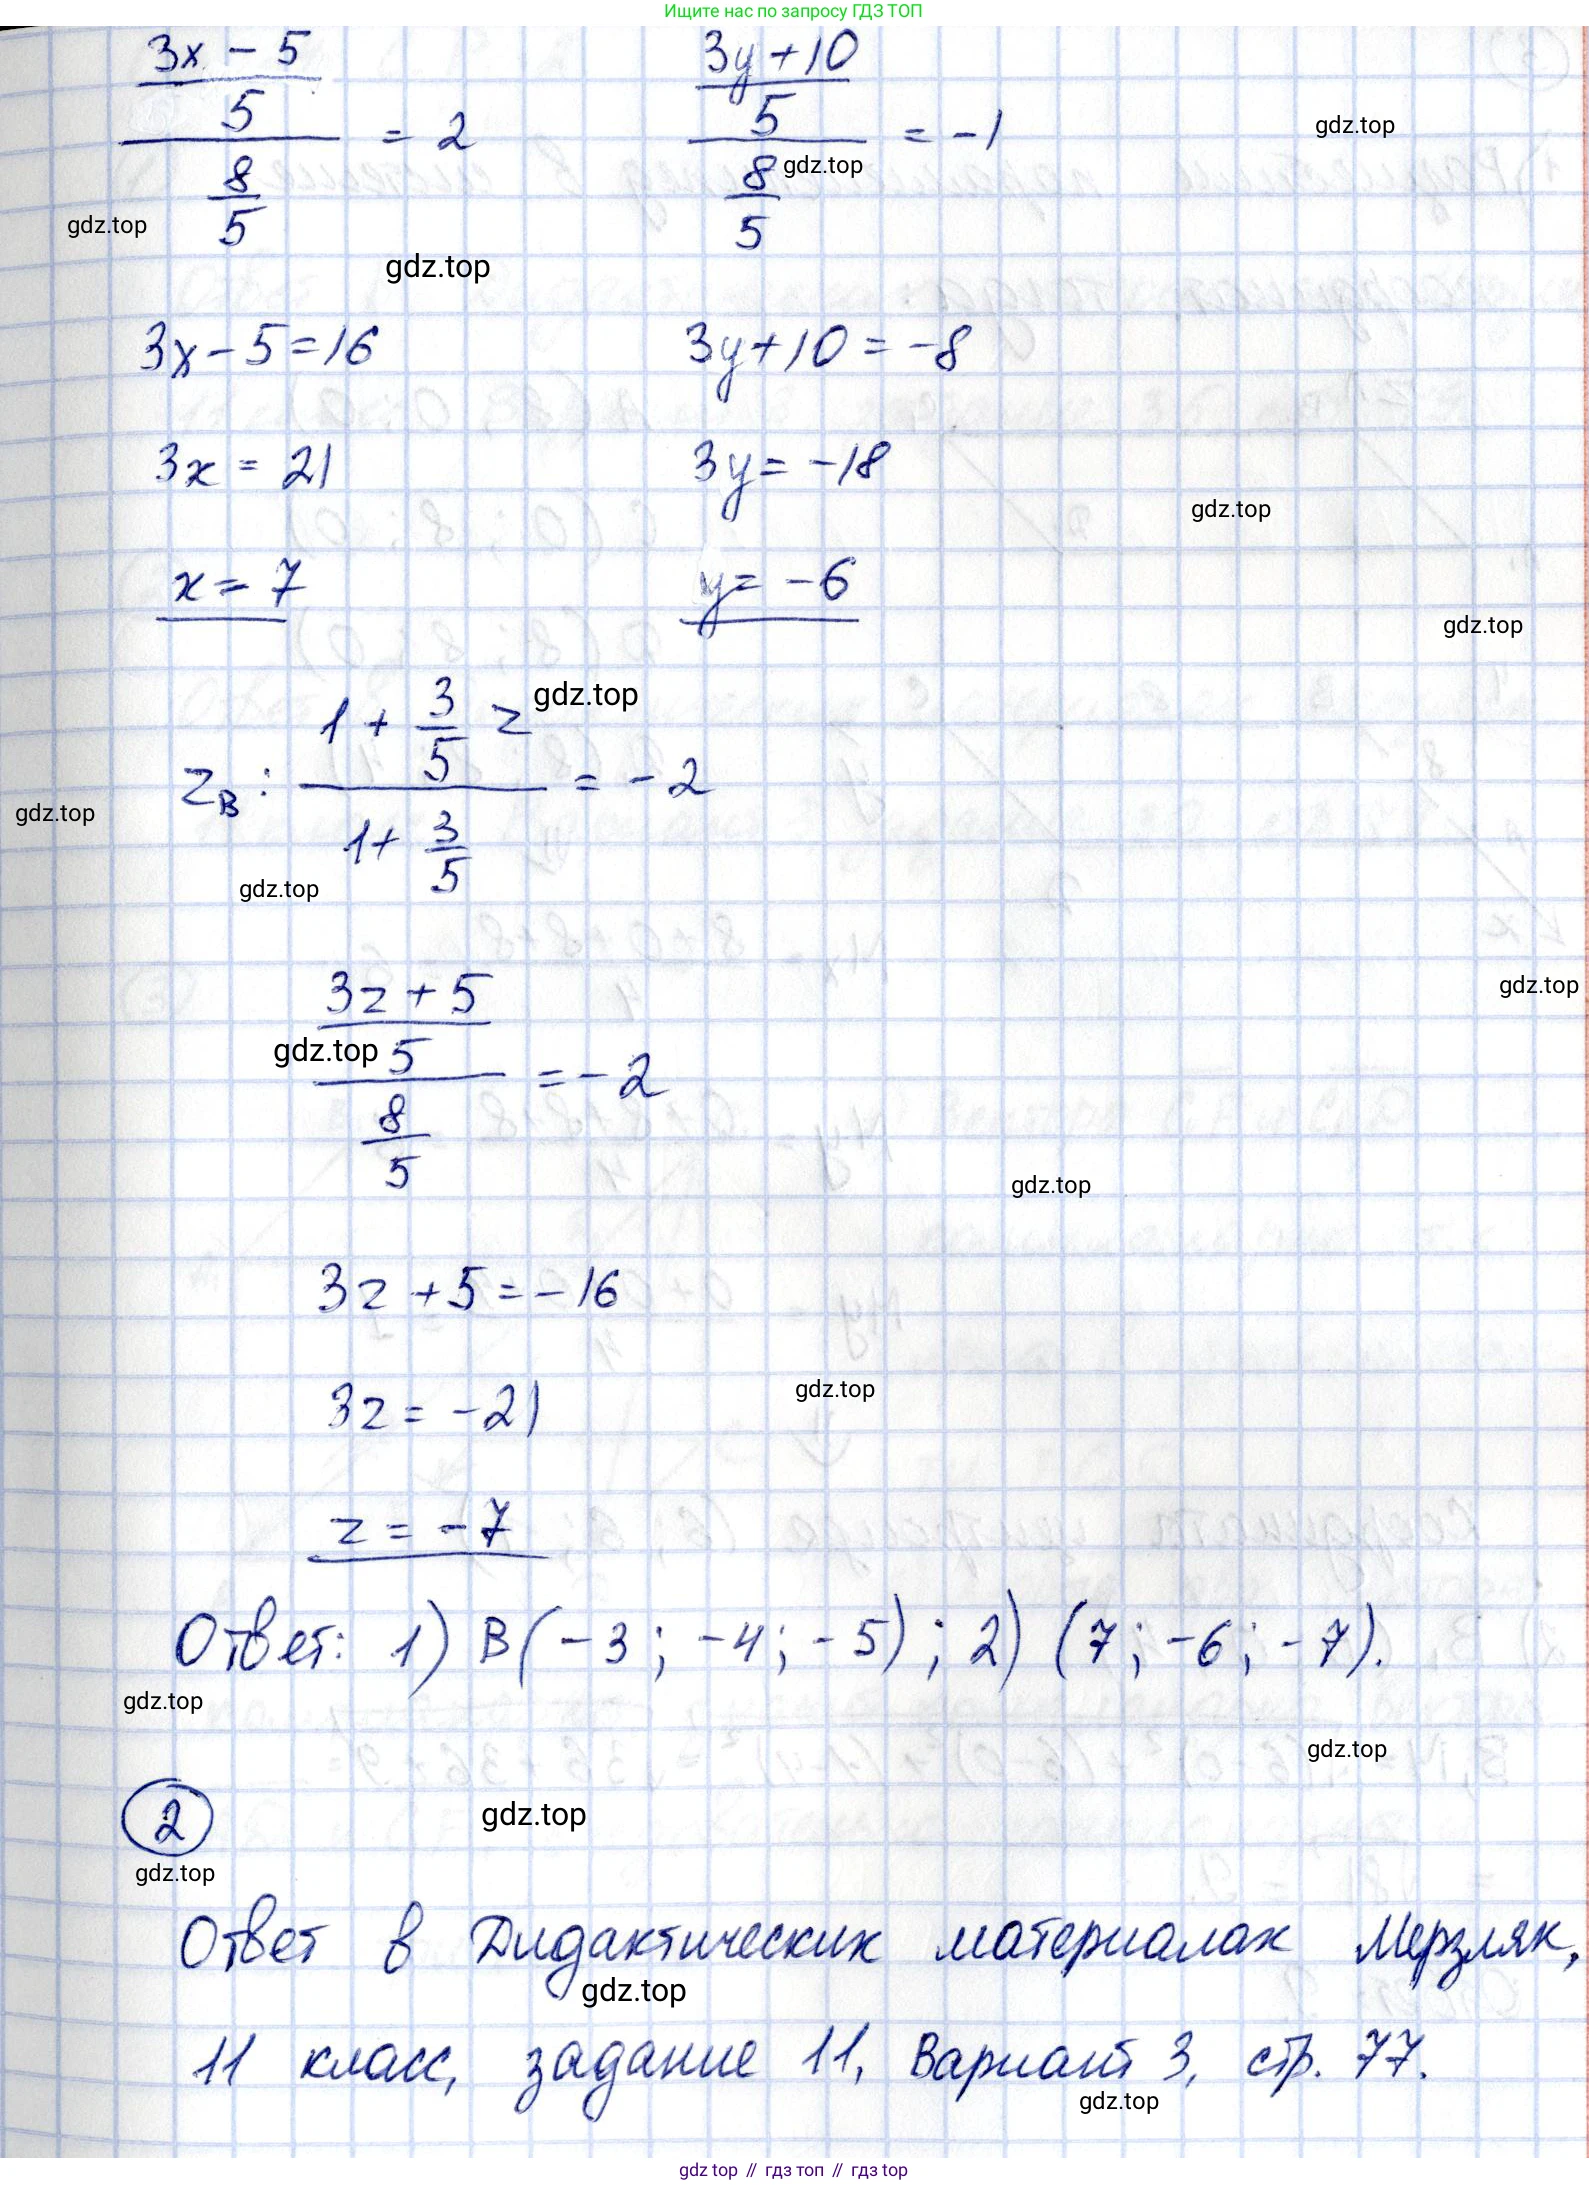 Ищите нас по запросу ГДЗ ТОП
(3x - 5)/5 / (8/5) = 2
(3y + 10)/5 / (8/5) = -1
gdz.top
gdz.top
gdz.top
gdz.top
3x - 5 = 16
3y + 10 = -8
3x = 21
3y = -18
gdz.top
x = 7
y = -6
gdz.top
z_B: (1 + 3/5 z) / (1 + 3/5) = -2
gdz.top
gdz.top
gdz.top
(3z + 5)/5 / (8/5) = -2
gdz.top
gdz.top
gdz.top
3z + 5 = -16
3z = -21
gdz.top
z = -7
Ответ: 1) B(-3; -4; -5); 2) (7; -6; -7).
gdz.top
gdz.top
2
gdz.top
gdz.top
Ответ в Дидактических материалах Мерзляк,
gdz.top
11 класс, задание 11, Вариант 3, стр. 77.
gdz.top
gdz top // гдз топ // gdz top